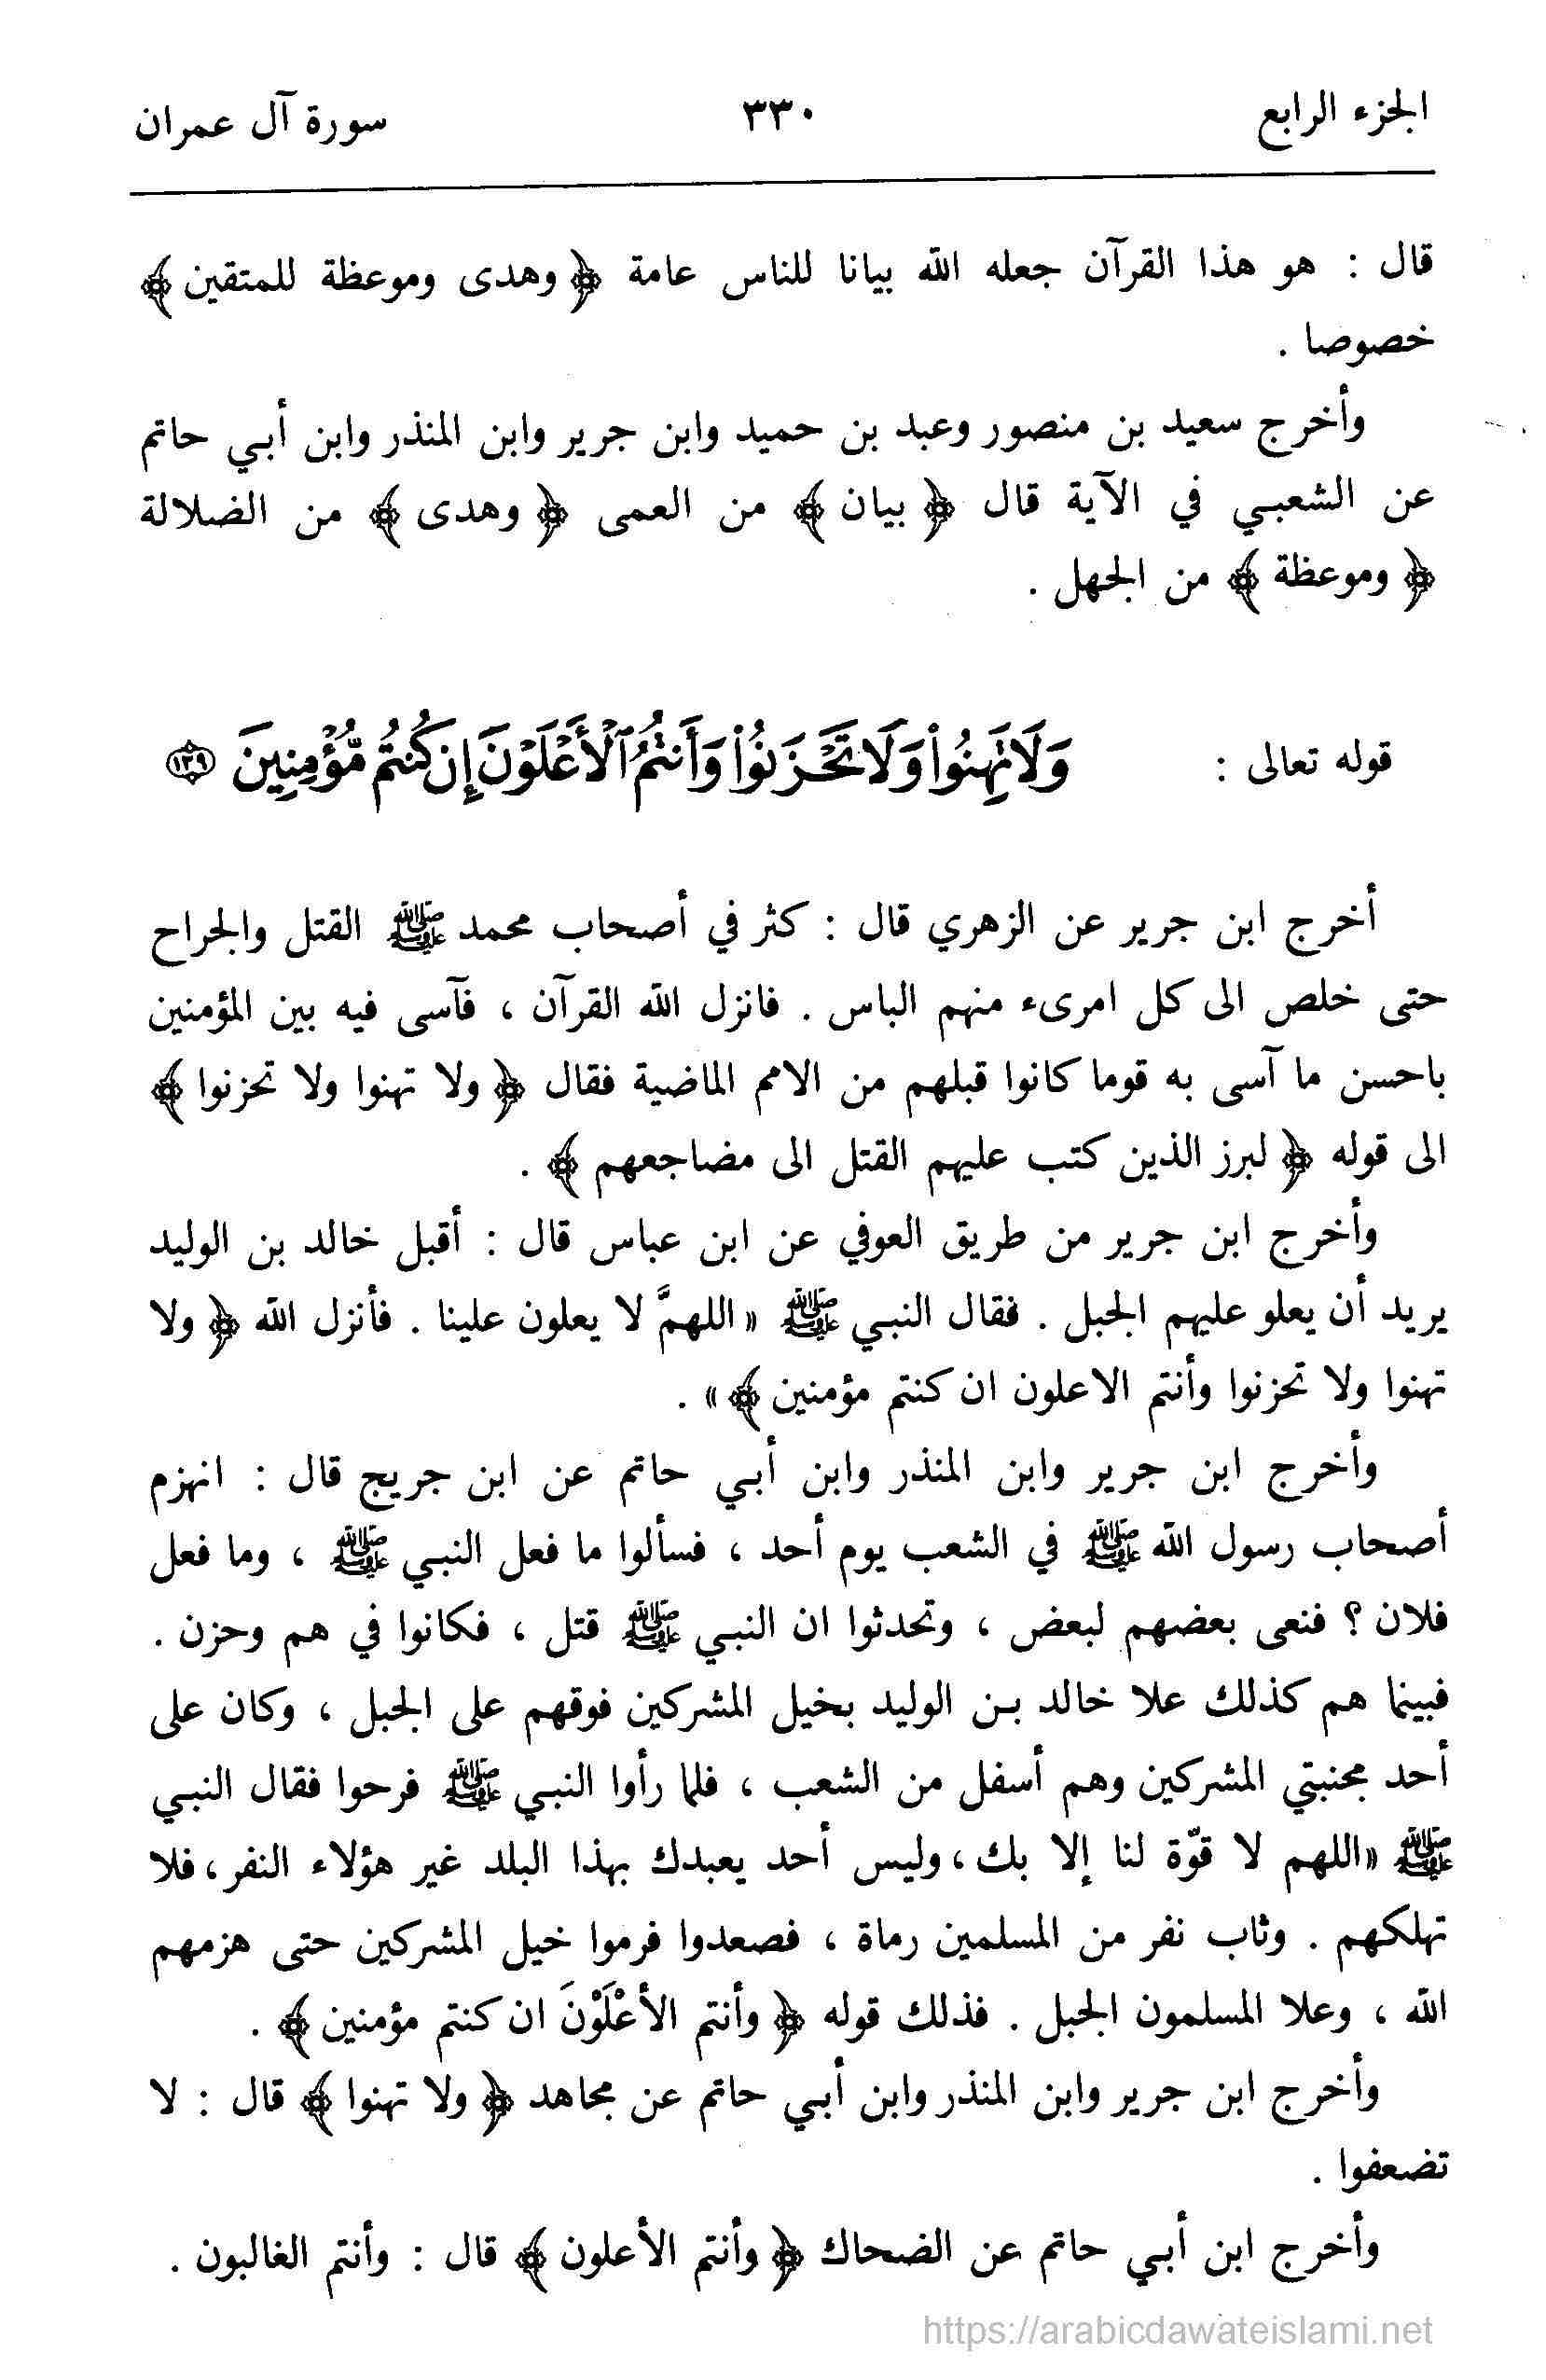 الجزء الرابع ٣٣٠ سورة آل عمران
قال : هو هذا القرآن جعله الله بيانا للناس عامة ﴿ وهدى وموعظة للمتقين ﴾
خصوصا .
وأخرج سعيد بن منصور وعبد بن حميد وابن جرير وابن المنذر وابن أبي حاتم
عن الشعبي في الآية قال ﴿ بيان ﴾ من العمى ﴿ وهدى ﴾ من الضلالة
﴿ وموعظة ﴾ من الجهل .
قوله تعالى : وَلَا تَهِنُواْ وَلَا تَحْزَنُواْ وَأَنتُمُ ٱلْأَعْلَوْنَ إِن كُنتُم مُّؤْمِنِينَ ١٣٩
أخرج ابن جرير عن الزهري قال : كثر في أصحاب محمد ﷺ القتل والجراح
حتى خلص الى كل امرىء منهم الباس . فانزل الله القرآن ، فآسى فيه بين المؤمنين
باحسن ما آسى به قوما كانوا قبلهم من الامم الماضية فقال ﴿ ولا تهنوا ولا تحزنوا ﴾
الى قوله ﴿ لبرز الذين كتب عليهم القتل الى مضاجعهم ﴾ .
وأخرج ابن جرير من طريق العوفي عن ابن عباس قال : أقبل خالد بن الوليد
يريد أن يعلو عليهم الجبل . فقال النبي ﷺ « اللهمَّ لا يعلون علينا . فأنزل الله ﴿ ولا
تهنوا ولا تحزنوا وأنتم الاعلون ان كنتم مؤمنين ﴾ » .
وأخرج ابن جرير وابن المنذر وابن أبي حاتم عن ابن جريج قال : انهزم
أصحاب رسول الله ﷺ في الشعب يوم أحد ، فسألوا ما فعل النبي ﷺ ، وما فعل
فلان ؟ فنعى بعضهم لبعض ، وتحدثوا ان النبي ﷺ قتل ، فكانوا في هم وحزن .
فبينما هم كذلك علا خالد بن الوليد بخيل المشركين فوقهم على الجبل ، وكان على
أحد مجنبتي المشركين وهم أسفل من الشعب ، فلما رأوا النبي ﷺ فرحوا فقال النبي
ﷺ « اللهم لا قوّة لنا إلا بك ، وليس أحد يعبدك بهذا البلد غير هؤلاء النفر ، فلا
تهلكهم . وثاب نفر من المسلمين رماة ، فصعدوا فرموا خيل المشركين حتى هزمهم
الله ، وعلا المسلمون الجبل . فذلك قوله ﴿ وأنتم الأعْلَوْنَ ان كنتم مؤمنين ﴾ .
وأخرج ابن جرير وابن المنذر وابن أبي حاتم عن مجاهد ﴿ ولا تهنوا ﴾ قال : لا
تضعفوا .
وأخرج ابن أبي حاتم عن الضحاك ﴿ وأنتم الأعلون ﴾ قال : وأنتم الغالبون .
https://arabicdawateislami.net